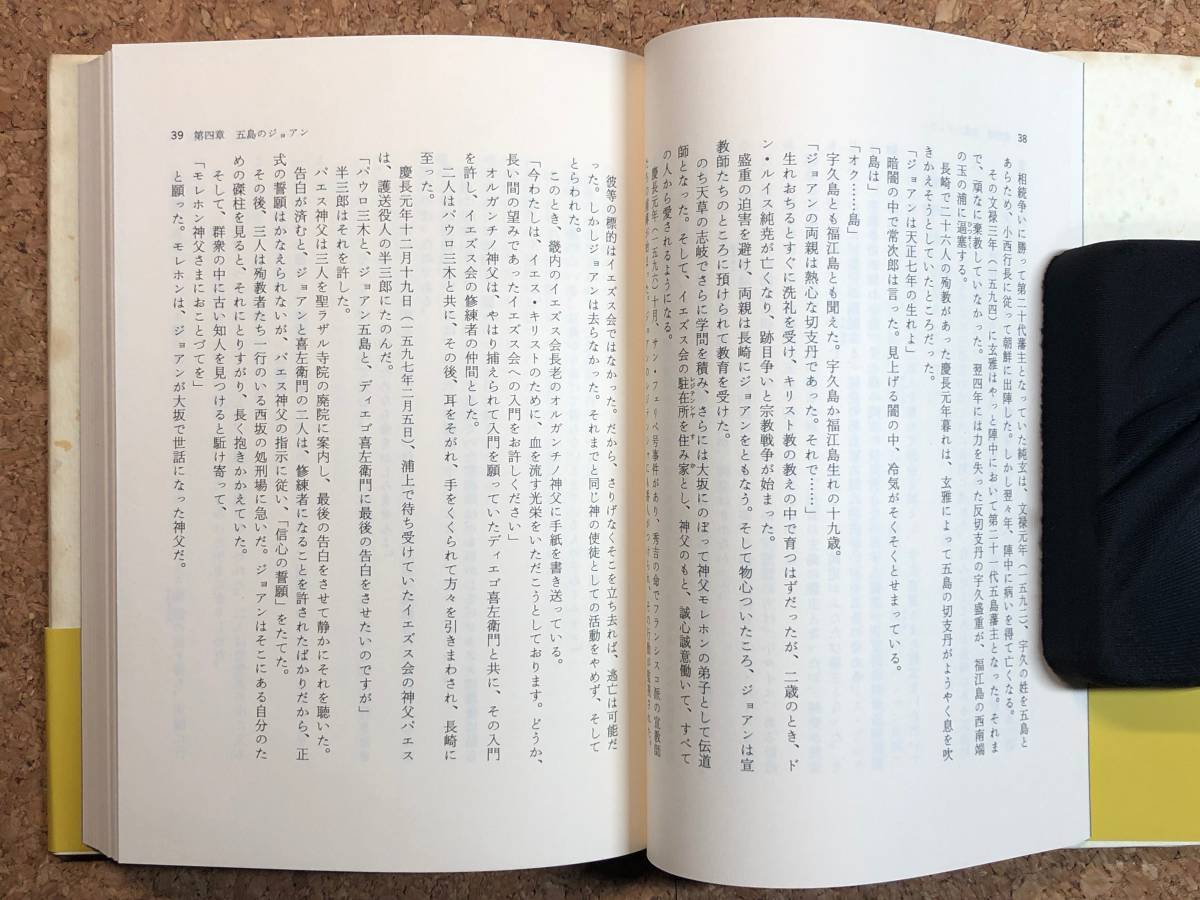 38
相続争いに勝って第二十代藩主となっていた純玄は、文禄元年(一五九二)、宇久の姓を五島と
あらため、小西行長に従って朝鮮に出陣した。しかし翌々年、陣中に病いを得て亡くなる。
その文禄三年(一五九四)に玄雅はやっと陣中において第二十一代五島藩主となった。それま
で、頑なに棄教していなかった。翌四年には力を失った反切支丹の宇久盛重が、福江島の西南端
の玉の浦に逼塞する。
長崎で二十六人の殉教があった慶長元年暮れは、玄雅によって五島の切支丹がようやく息を吹
きかえそうとしていたところだった。
「ジョアンは天正七年の生れよ」
暗闇の中で常次郎は言った。見上げる闇の中、冷気がそくそくとせまっている。
「島は」
「オク……島」
宇久島とも福江島とも聞えた。宇久島か福江島生れの十九歳。
「ジョアンの両親は熱心な切支丹であった。それで……」
生れおちるとすぐに洗礼を受け、キリスト教の教えの中で育つはずだったが、二歳のとき、ド
ン・ルイス純尭が亡くなり、跡目争いと宗教戦争が始まった。
盛重の迫害を避け、両親は長崎にジョアンをともなう。そして物心ついたころ、ジョアンは宣
教師たちのところに預けられて教育を受けた。
のち天草の志岐でさらに学問を積み、さらには大坂にのぼって神父モレホンの弟子として伝道
師となった。そして、イエズス会の駐在所を住み家とし、神父のもと、誠心誠意働いて、すべて
の人から愛されるようになる。
慶長元年(一五九六)十月、サン・フェリペ号事件があり、秀吉の命でフランシスコ派の宣教師
39 第四章 五島のジョアン
彼等の標的はイエズス会ではなかった。だから、さりげなくそこを立ち去れば、逃亡は可能だ
った。しかしジョアンは去らなかった。それまでと同じ神の使徒としての活動をやめず、そして
とらわれた。
このとき、畿内のイエズス会長老のオルガンチノ神父に手紙を書き送っている。
「今わたしは、イエス・キリストのために、血を流す光栄をいただこうとしております。どうか、
長い間の望みであったイエズス会への入門をお許しください」
オルガンチノ神父は、やはり捕えられて入門を願っていたディエゴ喜左衛門と共に、その入門
を許し、イエズス会の修練者の仲間とした。
二人はパウロ三木と共に、その後、耳をそがれ、手をくくられて方々を引きまわされ、長崎に
至った。
慶長元年十二月十九日(一五九七年二月五日)、浦上で待ち受けていたイエズス会の神父パエス
は、護送役人の半三郎にたのんだ。
「パウロ三木と、ジョアン五島と、ディエゴ喜左衛門に最後の告白をさせたいのですが」
半三郎はそれを許した。
パエス神父は三人を聖ラザル寺院の廃院に案内し、最後の告白をさせて静かにそれを聴いた。
告白が済むと、ジョアンと喜左衛門の二人は、修練者になることを許されたばかりだから、正
式の誓願はかなえられないが、パエス神父の指示に従い、「信心の誓願」をたてた。
その後、三人は殉教者たち一行のいる西坂の処刑場に急いだ。ジョアンはそこにある自分のた
めの磔柱を見ると、それにとりすがり、長く抱きかかえていた。
そして、群衆の中に古い知人を見つけると駈け寄って、
「モレホン神父さまにおことづてを」
と願った。モレホンは、ジョアンが大坂で世話になった神父だ。